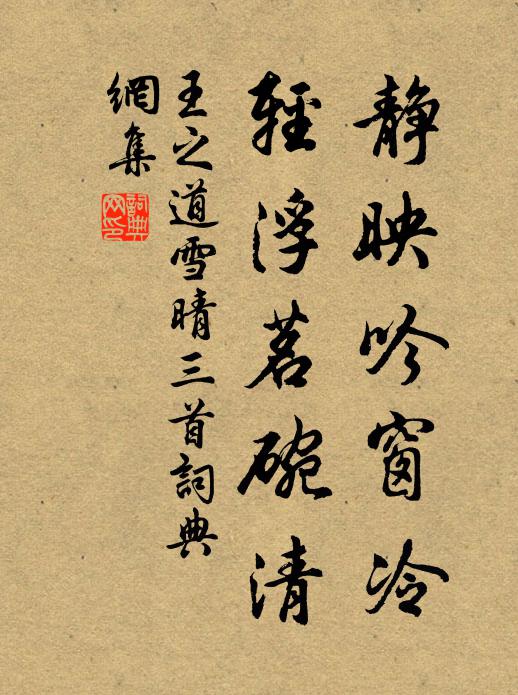 静映吟窗冷
輕浮茗碗清
王之道雪晴三首詞典
網集
詞典
网印